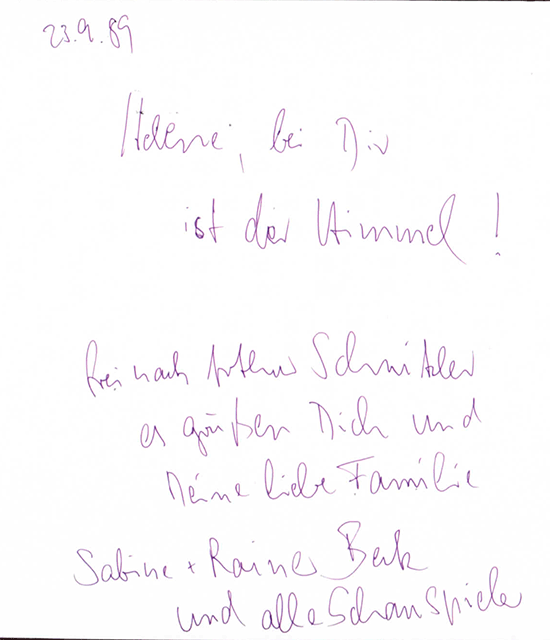 23.9.89
Heleni, bei Dir
ist der Himmel!
frei nach Arthur Schnitzler
es grüßen Dich und
Deine liebe Familie
Sabine + Rainer
und alle Schauspieler